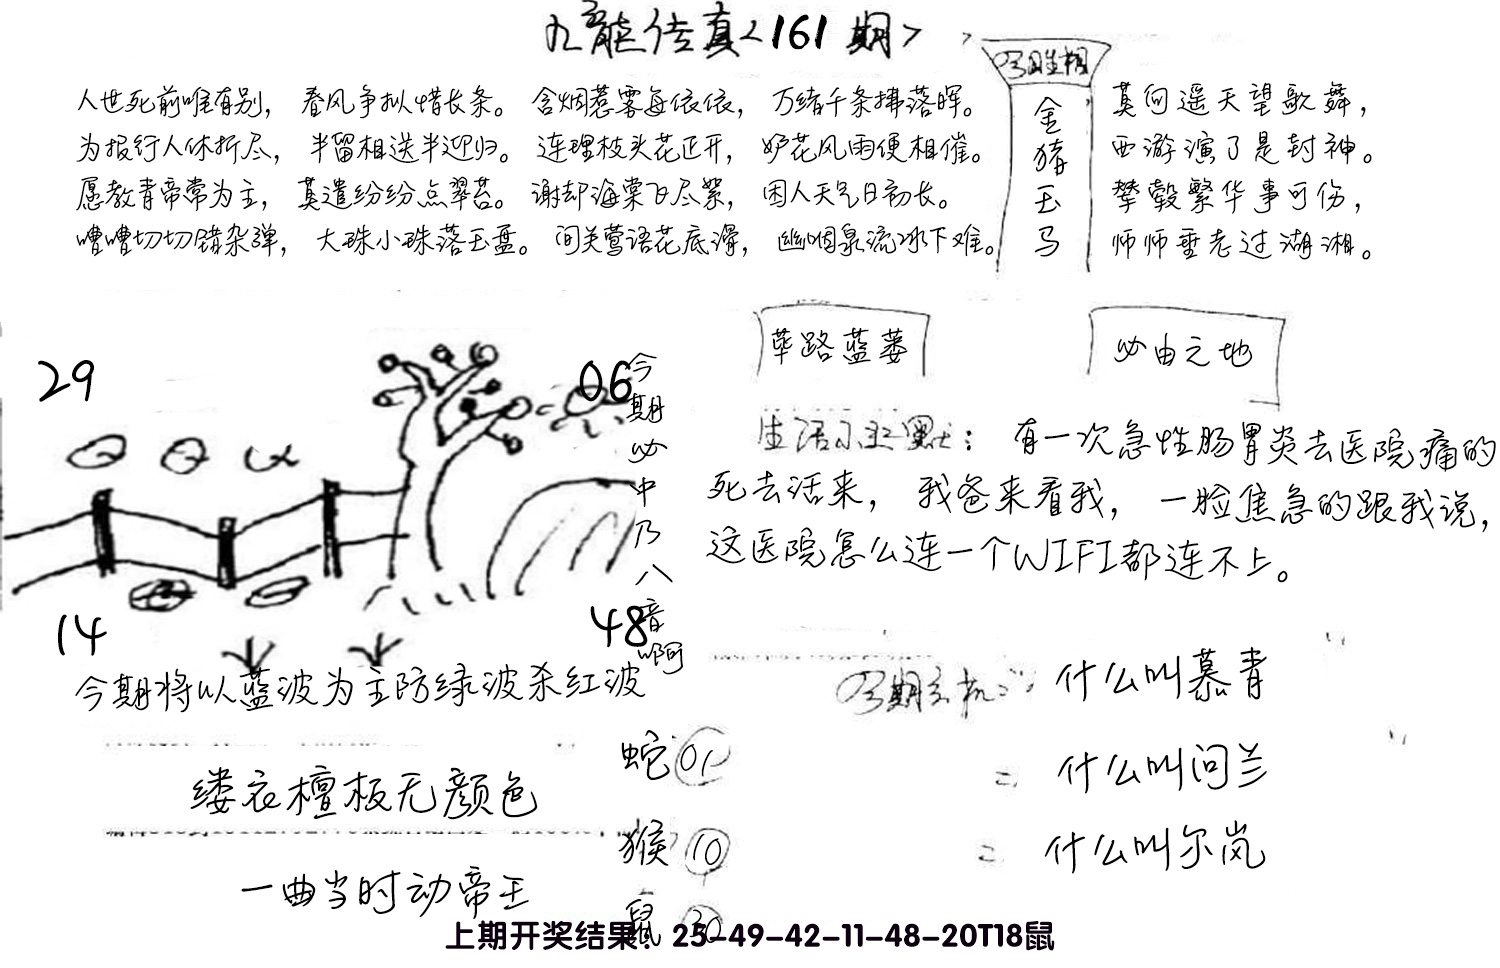 九龍传真<161期>
今期生相
金猪玉马
人世死前唯有别，春风争拟惜长条。含烟惹雾每依依，万绪千条拂落晖。
为报行人休折尽，半留相送半迎归。连理枝头花正开，妒花风雨便相催。
愿教青帝常为主，莫遣纷纷点翠苔。谢却海棠飞尽絮，困人天气日初长。
嘈嘈切切错杂弹，大珠小珠落玉盘。间关莺语花底滑，幽咽泉流冰下难。
莫向遥天望歌舞，
西游演了是封神。
辇毂繁华事可伤，
师师垂老过湖湘。
29
06
14
48
今期必中乃八音啊
荜路蓝蒌
必由之地
生活小幽默：有一次急性肠胃炎去医院痛的
死去活来，我爸来看我，一脸焦急的跟我说，
这医院怎么连一个WIFI都连不上。
今期将以蓝波为主防绿波杀红波
今期玄机
什么叫慕青
什么叫问兰
什么叫尔岚
缕衣檀板无颜色
一曲当时动帝王
蛇 01
猴 10
鼠 30
上期开奖结果：25-49-42-11-48-20T18鼠